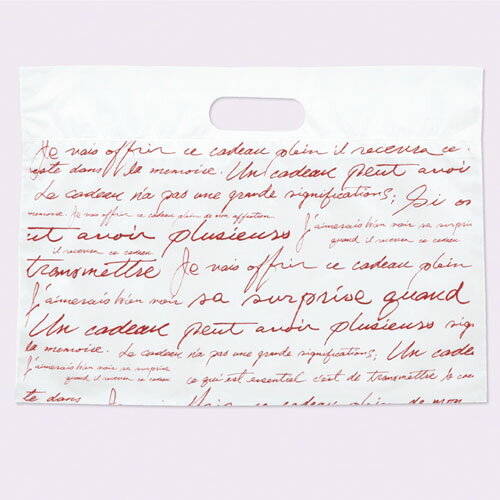 Je vais offrir ce cadeau plein il recevra ce
dans la memoire. Un cadeau peut avoi
Le cadeau n'a pas une grande significations; Si os
memoire. Je vais offrir ce cadeau plein de mon affection
J'aimerais bien voir sa surprise
ut avoir plusieurs
quand il recever ce cadeau
il recever ce cadeau
transmettre Je vais offrir ce cadeau plein
J'aimerais bien voir sa surprise quand
Un cadeau peut avoir plusieurs sign
la memoire. Le cadeau n'a pas une grande significations; Un cade
J'aimerais bien voir sa surprise
quand il recever ce cadeau
ce qui est essentiel c'est de transmettre le
te dans Je offrir ce cadeau plein de mon